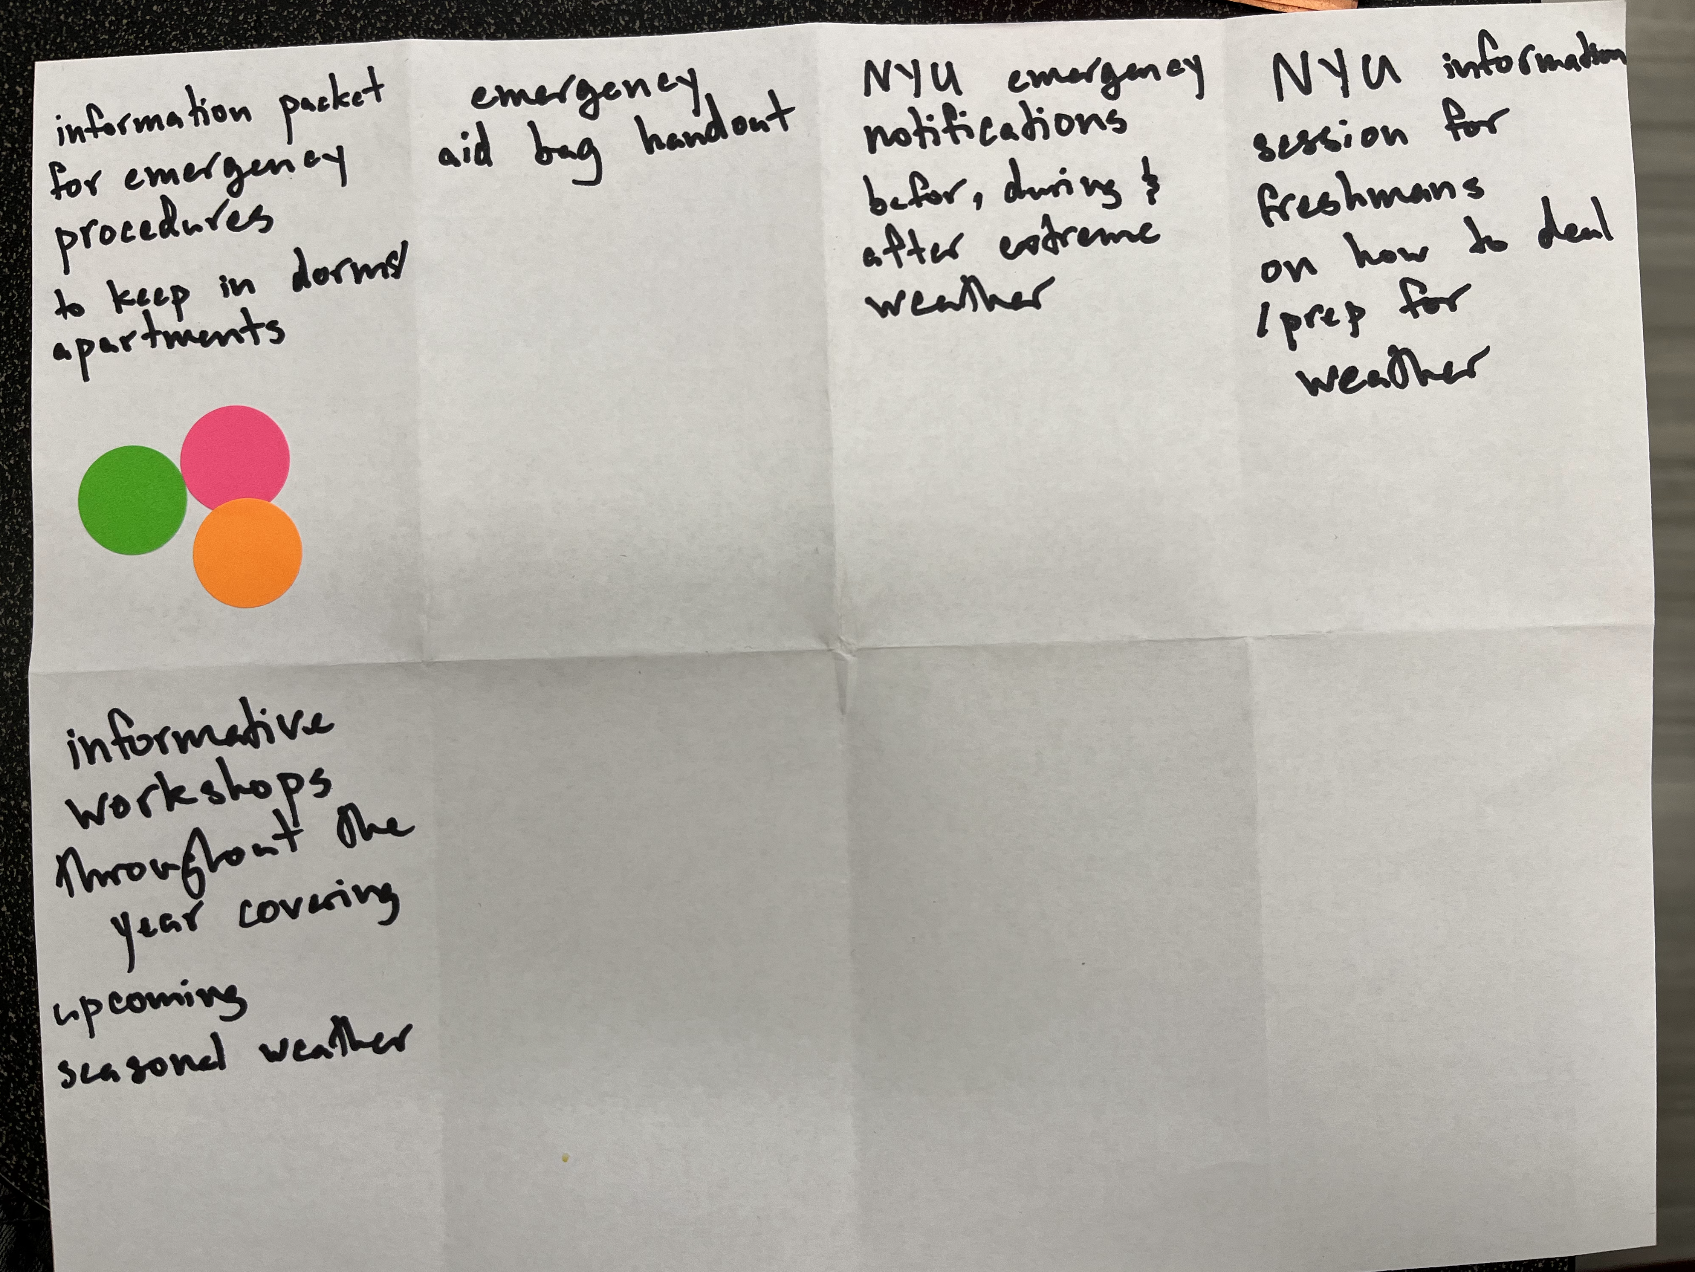 information packet
for emergency
procedures
to keep in dorms/
apartments
emergency
aid bag handout
NYU emergency
notifications
befor, during &
after extreme
weather
NYU information
session for
freshmans
on how to deal
/prep for
weather
informative
workshops
throughout the
year covering
upcoming
seasonal weather